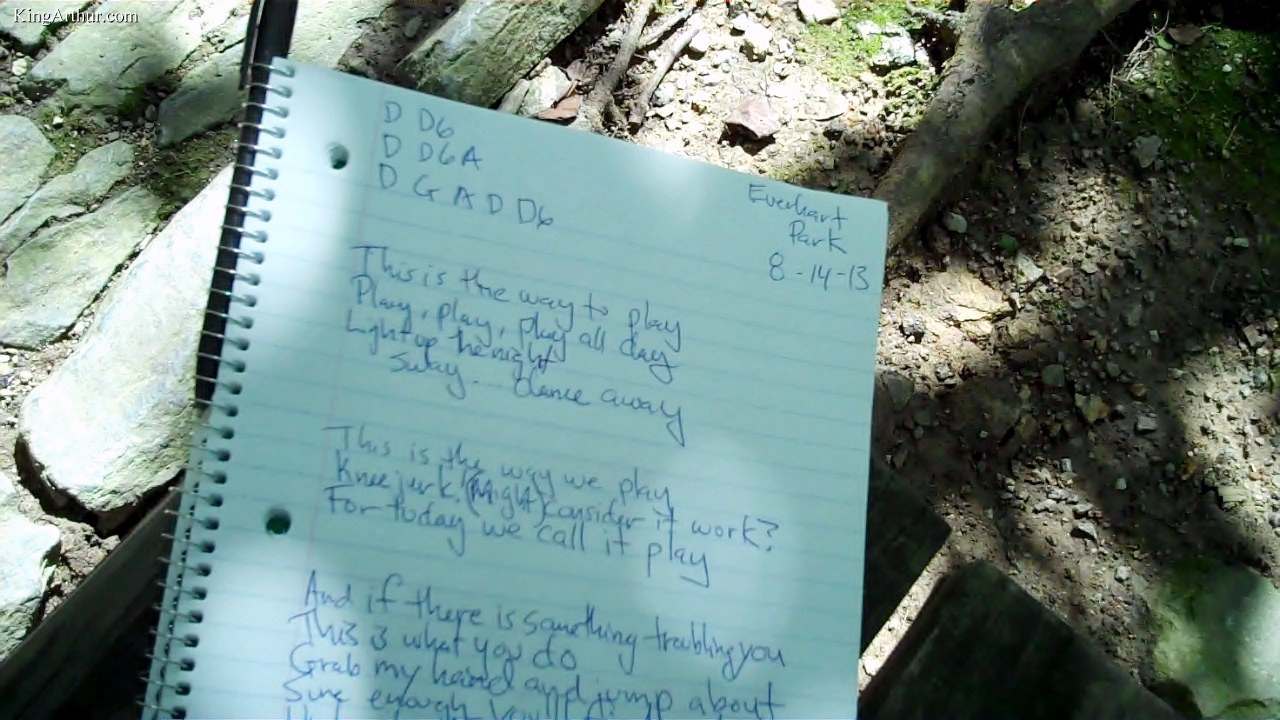 KingArthur.com
D D6
D D6 A
D G A D D6
Everhart
Park
8-14-13
This is the way to play
Play, play, play all day
Light up the night
Sway... dance away
This is the way we play
Kneejerk. (Might) consider it work?
For today we call it play
And if there is something troubling you
This is what you do
Grab my hand and jump about
Sure enough you'll